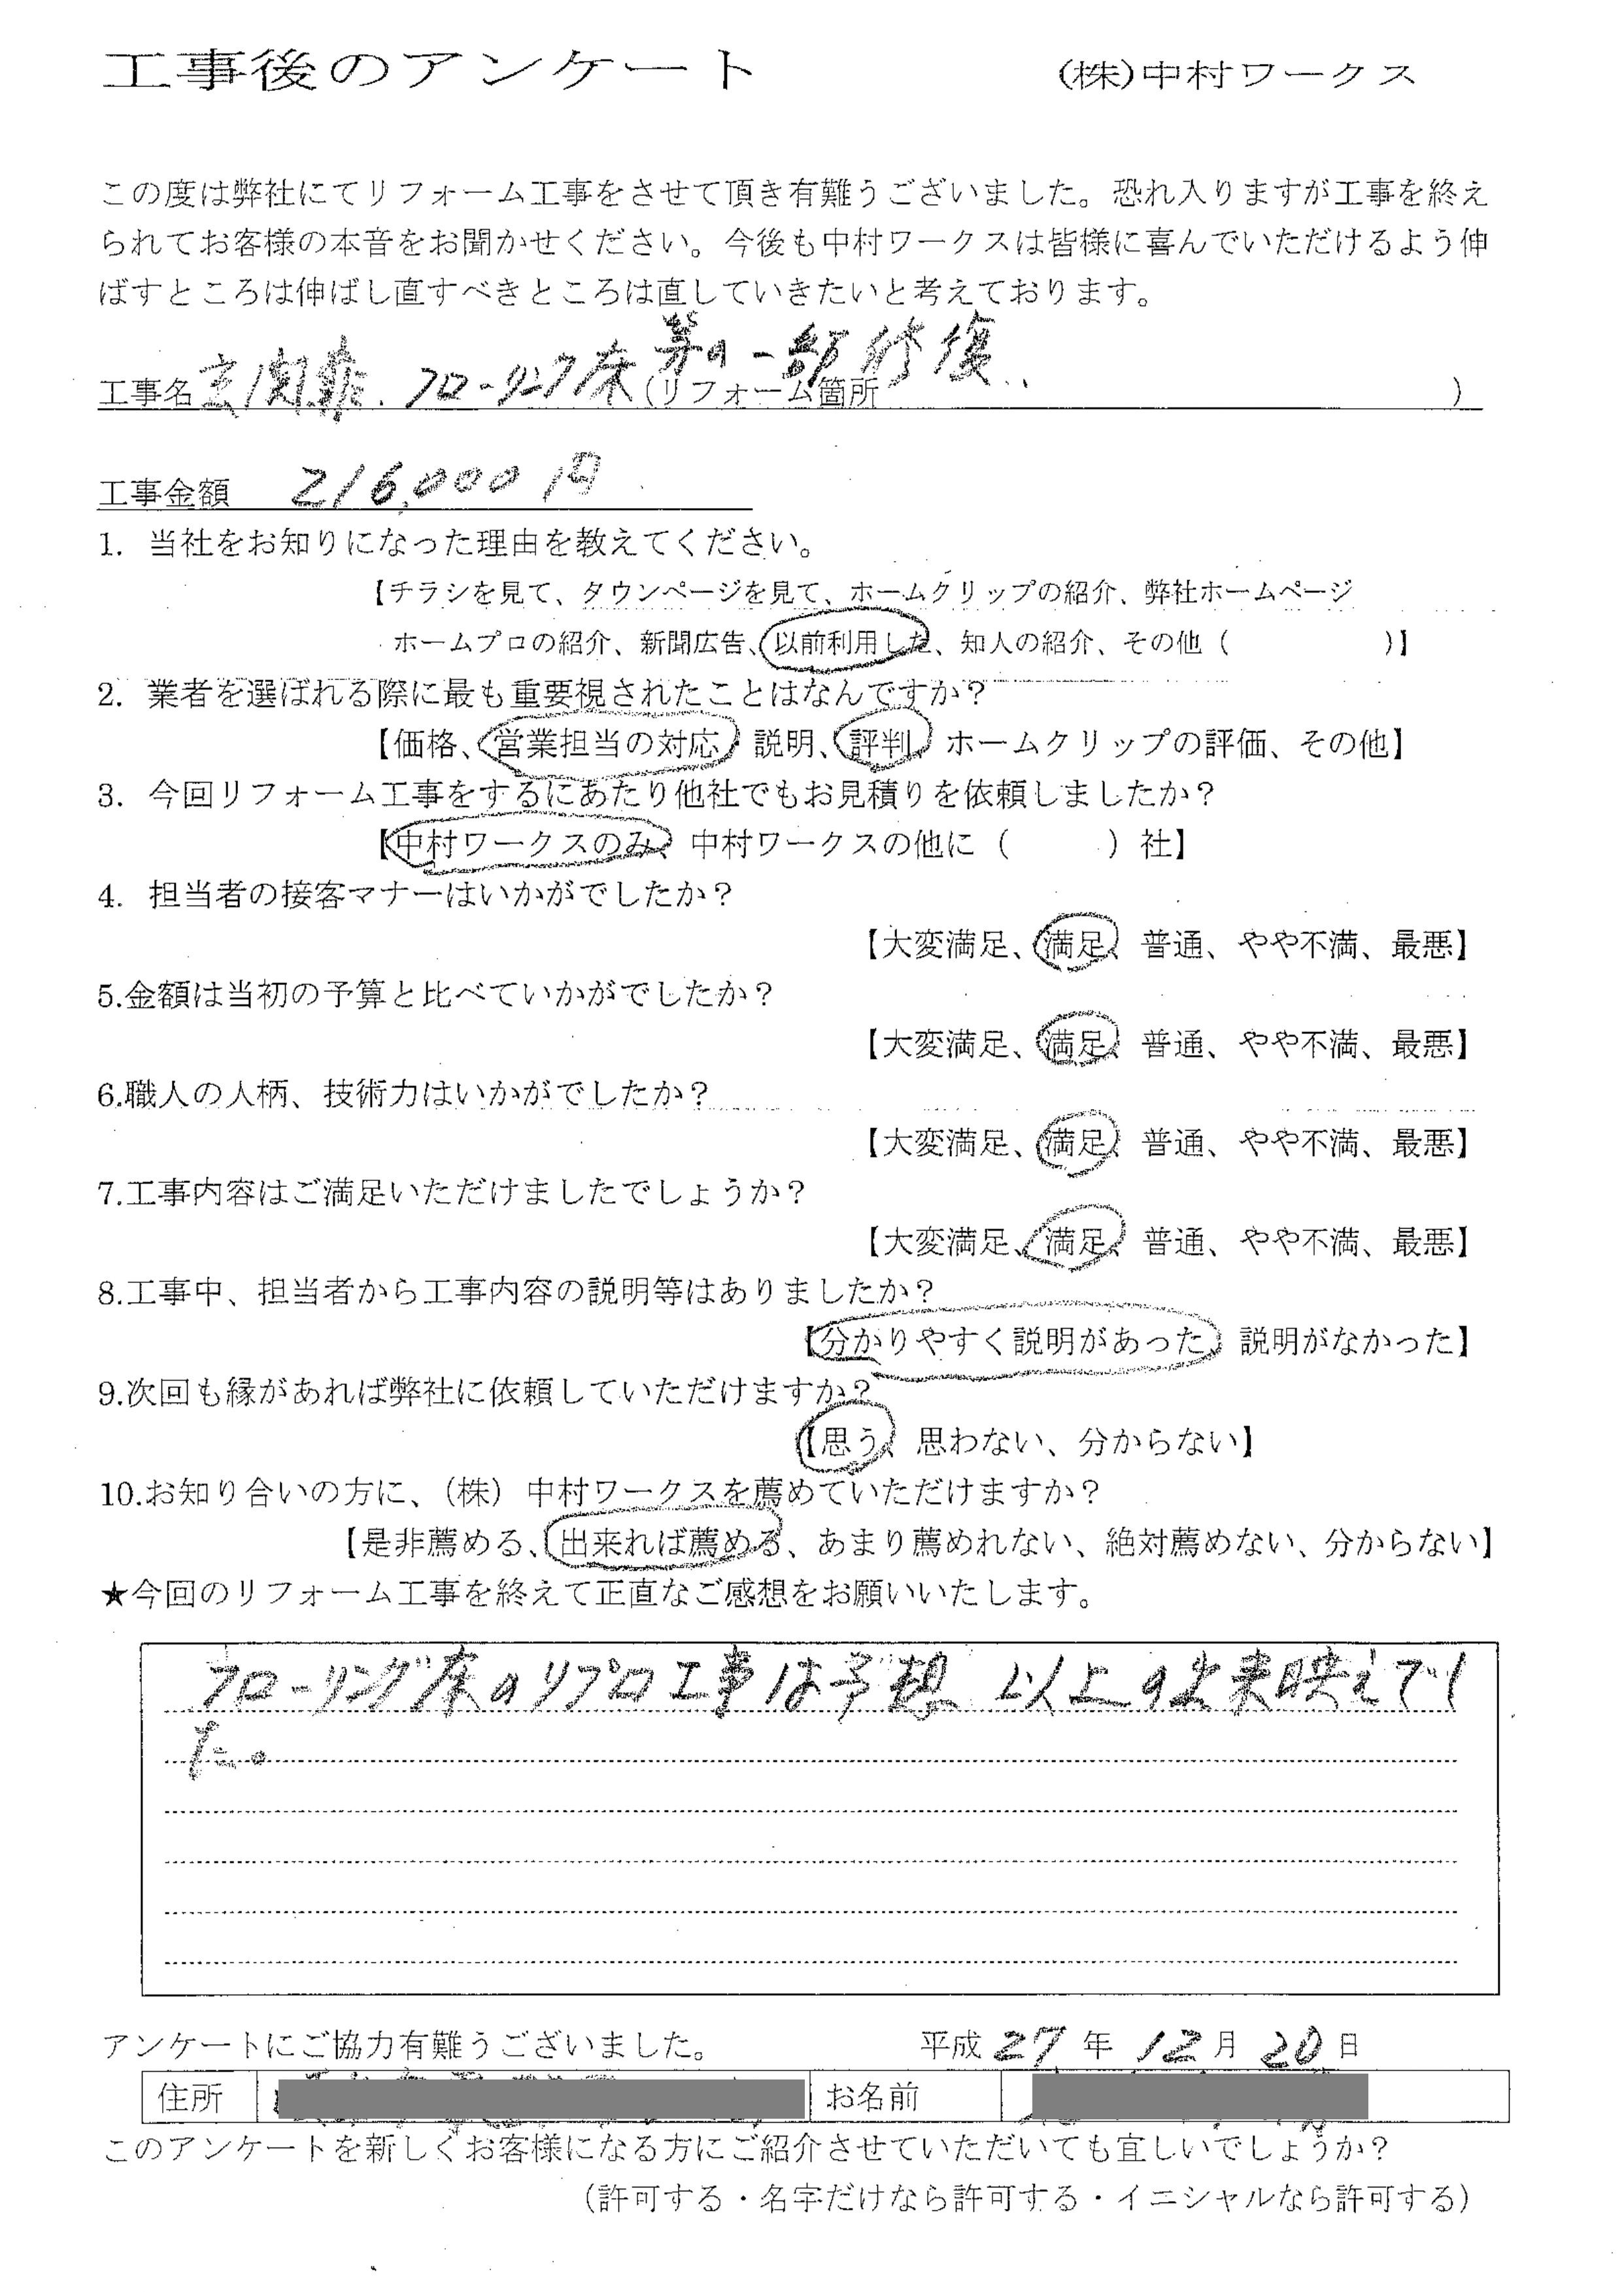 工事後のアンケート (株)中村ワークス
この度は弊社にてリフォーム工事をさせて頂き有難うございました。恐れ入りますが工事を終え
られてお客様の本音をお聞かせください。今後も中村ワークスは皆様に喜んでいただけるよう伸
ばすところは伸ばし直すべきところは直していきたいと考えております。
工事名 玄関扉.フローリング床 等の一部修復 (リフォーム箇所 )
工事金額 216,000円
1. 当社をお知りになった理由を教えてください。
【チラシを見て、タウンページを見て、ホームクリップの紹介、弊社ホームページ
ホームプロの紹介、新聞広告、以前利用した、知人の紹介、その他( )】
2. 業者を選ばれる際に最も重要視されたことはなんですか?
【価格、営業担当の対応、説明、評判、ホームクリップの評価、その他】
3. 今回リフォーム工事をするにあたり他社でもお見積りを依頼しましたか?
【中村ワークスのみ、中村ワークスの他に( )社】
4. 担当者の接客マナーはいかがでしたか?
【大変満足、満足、普通、やや不満、最悪】
5.金額は当初の予算と比べていかがでしたか?
【大変満足、満足、普通、やや不満、最悪】
6.職人の人柄、技術力はいかがでしたか?
【大変満足、満足、普通、やや不満、最悪】
7.工事内容はご満足いただけましたでしょうか?
【大変満足、満足、普通、やや不満、最悪】
8.工事中、担当者から工事内容の説明等はありましたか?
【分かりやすく説明があった、説明がなかった】
9.次回も縁があれば弊社に依頼していただけますか?
【思う、思わない、分からない】
10.お知り合いの方に、(株)中村ワークスを薦めていただけますか?
【是非薦める、出来れば薦める、あまり薦めれない、絶対薦めない、分からない】
★今回のリフォーム工事を終えて正直なご感想をお願いいたします。
フローリング床のリプロ工事は予想以上の出来映えでし
た。
アンケートにご協力有難うございました。 平成27年12月20日
住所 お名前
このアンケートを新しくお客様になる方にご紹介させていただいても宜しいでしょうか?
(許可する・名字だけなら許可する・イニシャルなら許可する)